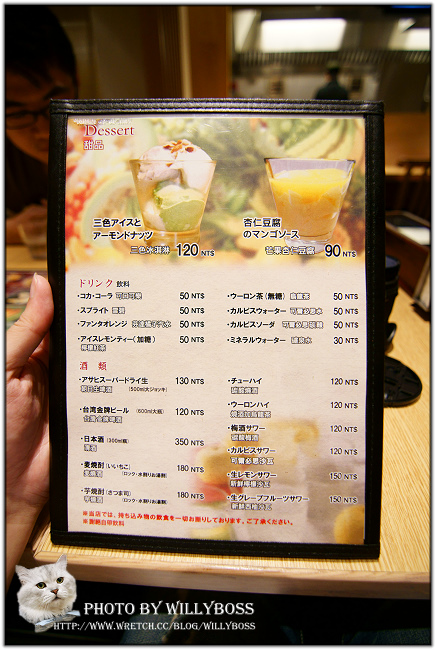 Dessert
甜品
三色アイスと
アーモンドナッツ
三色冰淇淋 120 NT$
杏仁豆腐
のマンゴソース
芒果杏仁豆腐 90 NT$
ドリンク 飲料
・コカ・コーラ 可口可樂 50 NT$
・スプライト 雪碧 50 NT$
・ファンタオレンジ 芬達橘子汽水 50 NT$
・アイスレモンティー(加糖) 50 NT$
檸檬紅茶
・ウーロン茶(無糖) 烏龍茶 50 NT$
・カルピスウォーター 可爾必思水 50 NT$
・カルピスソーダ 50 NT$
・ミネラルウォーター 礦泉水 30 NT$
酒類
・アサヒスーパードライ生 130 NT$
朝日生啤酒 (500ml大ジョッキ)
・台湾金牌ビール (600ml大瓶) 120 NT$
台灣金牌啤酒
・日本酒(300ml瓶) 350 NT$
清酒
・麦焼酎(いいちこ) 180 NT$
麥燒酒 (ロック・水割りお湯割)
・芋焼酎(さつま司) 180 NT$
芋燒酒 (ロック・水割りお湯割)
・チューハイ 120 NT$
・ウーロンハイ 120 NT$
・梅酒サワー 120 NT$
・カルピスサワー 120 NT$
可爾必思沙瓦
・生レモンサワー 150 NT$
新鮮檸檬沙瓦
・生グレープフルーツサワー 150 NT$
新鮮葡萄柚沙瓦
※当店では、持ち込み物の飲食を一切お断りしております。ご了承ください。
※謝絕自帶飲料
PHOTO BY WILLYBOSS
HTTP://WWW.WRETCH.CC/BLOG/WILLYBOSS